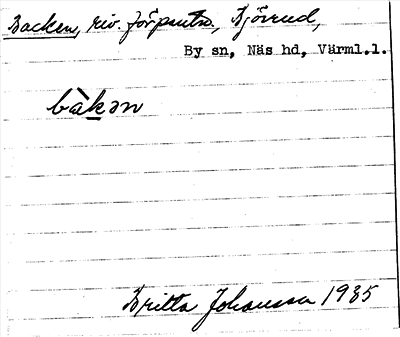 Backen, riv. förpantn., Björrud,
By sn, Näs hd, Värml.l.
bàkən
Britta Johansson 1935